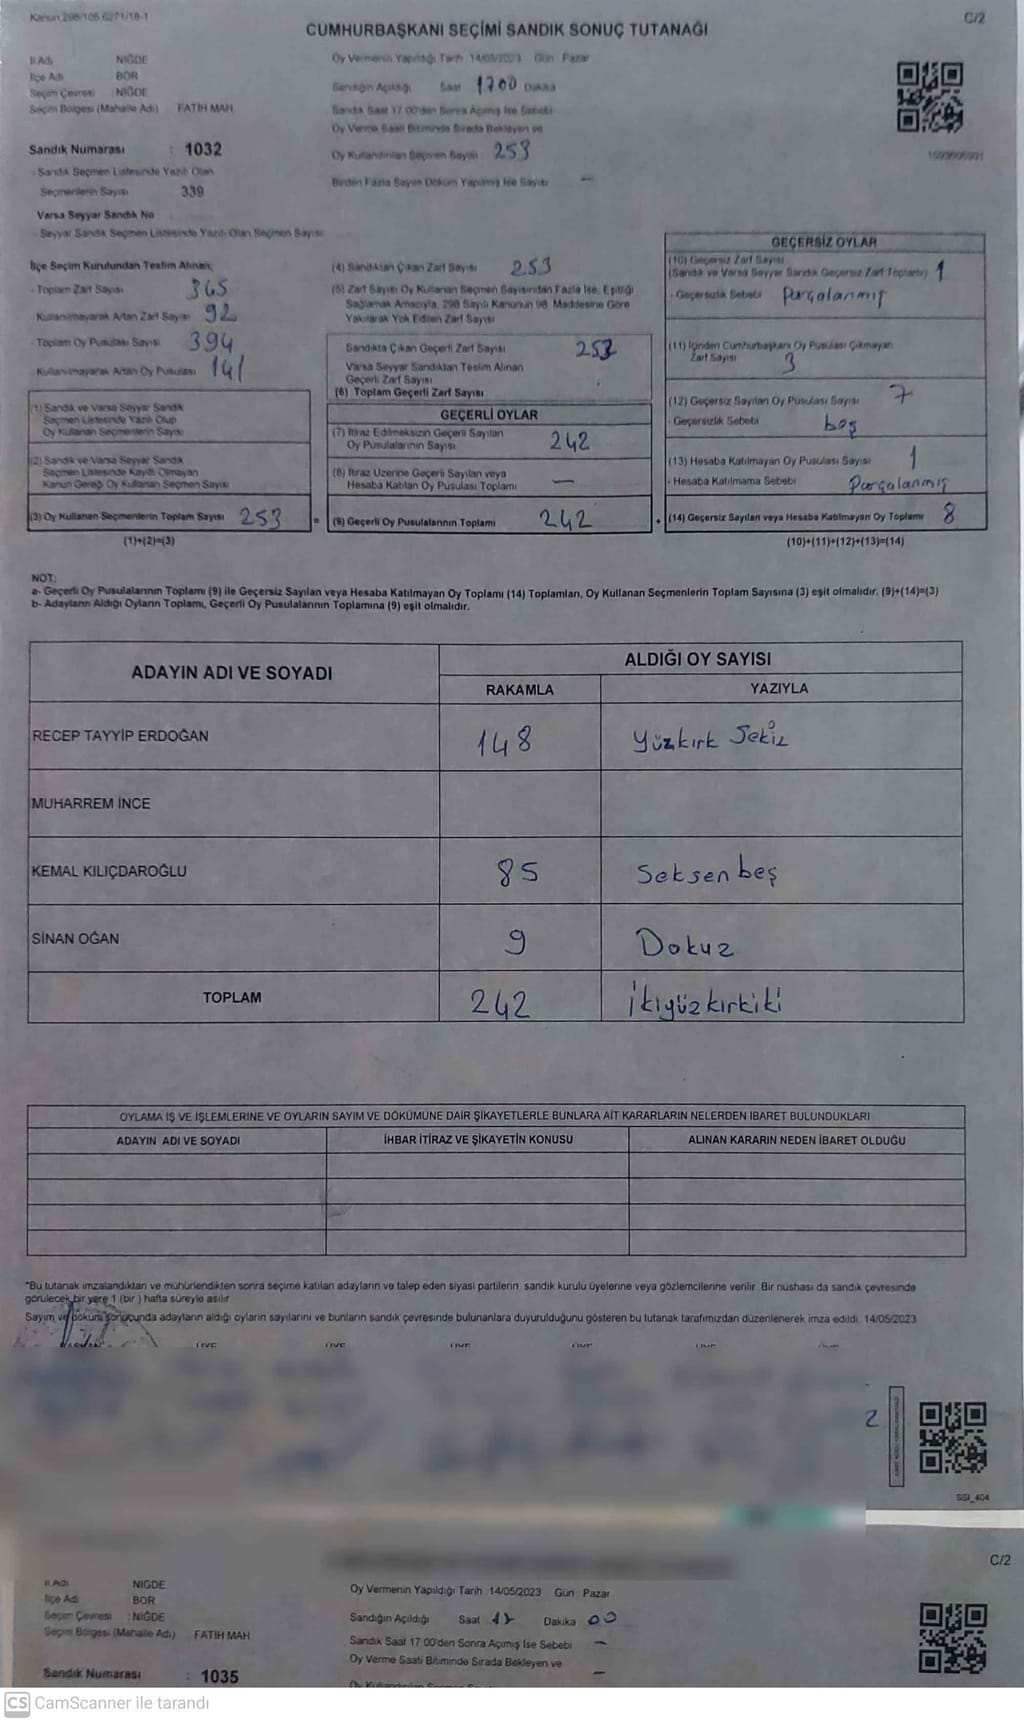 Kanun 298/105,6271/18-1
C/2
CUMHURBAŞKANI SEÇİMİ SANDIK SONUÇ TUTANAĞI
İl Adı NİĞDE
İlçe Adı BOR
Seçim Çevresi : NİĞDE
Seçim Bölgesi (Mahalle Adı) FATIH MAH
Sandık Numarası : 1032
- Sandık Seçmen Listesinde Yazılı Olan
Seçmenlerin Sayısı 339
Varsa Seyyar Sandık No
- Seyyar Sandık Seçmen Listesinde Yazılı Olan Seçmen Sayısı
Oy Vermenin Yapıldığı Tarih 14/05/2023 Gün Pazar
Sandığın Açıldığı Saat 1700 Dakika
Sandık Saat 17 00'den Sonra Açılmış İse Sebebi
Oy Verme Saati Bitiminde Sırada Bekleyen ve
Oy Kullandırılan Seçmen Sayısı 253
Birden Fazla Sayım Döküm Yapılmış İse Sayısı —
İlçe Seçim Kurulundan Teslim Alınan;
- Toplam Zarf Sayısı 365
Kullanılmayarak Artan Zarf Sayısı 92
- Toplam Oy Pusulası Sayısı 394
Kullanılmayarak Artan Oy Pusulası 141
(1) Sandık ve Varsa Seyyar Sandık
Seçmen Listesinde Yazılı Olup
Oy Kullanan Seçmenlerin Sayısı
(2) Sandık ve Varsa Seyyar Sandık
Seçmen Listesinde Kaydı Olmayan
Kanun Gereği Oy Kullanan Seçmen Sayısı
(3) Oy Kullanan Seçmenlerin Toplam Sayısı 253 =
(1)+(2)=(3)
(4) Sandıktan Çıkan Zarf Sayısı 253
(5) Zarf Sayısı Oy Kullanan Seçmen Sayısından Fazla İse, Eşitliği
Sağlamak Amacıyla, 298 Sayılı Kanunun 98. Maddesine Göre
Yakılarak Yok Edilen Zarf Sayısı
Sandıkta Çıkan Geçerli Zarf Sayısı 253
Varsa Seyyar Sandıktan Teslim Alınan
Geçerli Zarf Sayısı
(6) Toplam Geçerli Zarf Sayısı
GEÇERLİ OYLAR
(7) İtiraz Edilmeksizin Geçerli Sayılan
Oy Pusulalarının Sayısı 242
(8) İtiraz Üzerine Geçerli Sayılan veya
Hesaba Katılan Oy Pusulası Toplamı —
(9) Geçerli Oy Pusulalarının Toplamı 242 +
GEÇERSİZ OYLAR
(10) Geçersiz Zarf Sayısı
(Sandık ve Varsa Seyyar Sandık Geçersiz Zarf Toplamı) 1
- Geçersizlik Sebebi Parçalanmış
(11) İçinden Cumhurbaşkanı Oy Pusulası Çıkmayan
Zarf Sayısı 3
(12) Geçersiz Sayılan Oy Pusulası Sayısı 7
- Geçersizlik Sebebi boş
(13) Hesaba Katılmayan Oy Pusulası Sayısı 1
- Hesaba Katılmama Sebebi Parçalanmış
(14) Geçersiz Sayılan veya Hesaba Katılmayan Oy Toplamı 8
(10)+(11)+(12)+(13)=(14)
NOT:
a- Geçerli Oy Pusulalarının Toplamı (9) ile Geçersiz Sayılan veya Hesaba Katılmayan Oy Toplamı (14) Toplamları, Oy Kullanan Seçmenlerin Toplam Sayısına (3) eşit olmalıdır. (9)+(14)=(3)
b- Adayların Aldığı Oyların Toplamı, Geçerli Oy Pusulalarının Toplamına (9) eşit olmalıdır.
ADAYIN ADI VE SOYADI
ALDIĞI OY SAYISI
RAKAMLA YAZIYLA
RECEP TAYYİP ERDOĞAN 148 Yüzkırk Sekiz
MUHARREM İNCE
KEMAL KILIÇDAROĞLU 85 Seksen beş
SİNAN OĞAN 9 Dokuz
TOPLAM 242 İkiyüzkırkiki
OYLAMA İŞ VE İŞLEMLERİNE VE OYLARIN SAYIM VE DÖKÜMÜNE DAİR ŞİKAYETLERLE BUNLARA AİT KARARLARIN NELERDEN İBARET BULUNDUKLARI
ADAYIN ADI VE SOYADI İHBAR İTİRAZ VE ŞİKAYETİN KONUSU ALINAN KARARIN NEDEN İBARET OLDUĞU
*Bu tutanak imzalandıktan ve mühürlendikten sonra seçime katılan adayların ve talep eden siyasi partilerin sandık kurulu üyelerine veya gözlemcilerine verilir. Bir nüshası da sandık çevresinde
görülecek bir yere 1 (bir ) hafta süreyle asılır
Sayım ve döküm sonucunda adayların aldığı oyların sayılarını ve bunların sandık çevresinde bulunanlara duyurulduğunu gösteren bu tutanak tarafımızdan düzenlenerek imza edildi. 14/05/2023
2
SSI_404
C/2
İl Adı NİGDE
İlçe Adı BOR
Seçim Çevresi : NİĞDE
Seçim Bölgesi (Mahalle Adı) FATİH MAH
Sandık Numarası : 1035
Oy Vermenin Yapıldığı Tarih 14/05/2023 Gün Pazar
Sandığın Açıldığı Saat 17 Dakika 00
Sandık Saat 17 00'den Sonra Açılmış İse Sebebi —
Oy Verme Saati Bitiminde Sırada Bekleyen ve
—
CS CamScanner ile tarandı